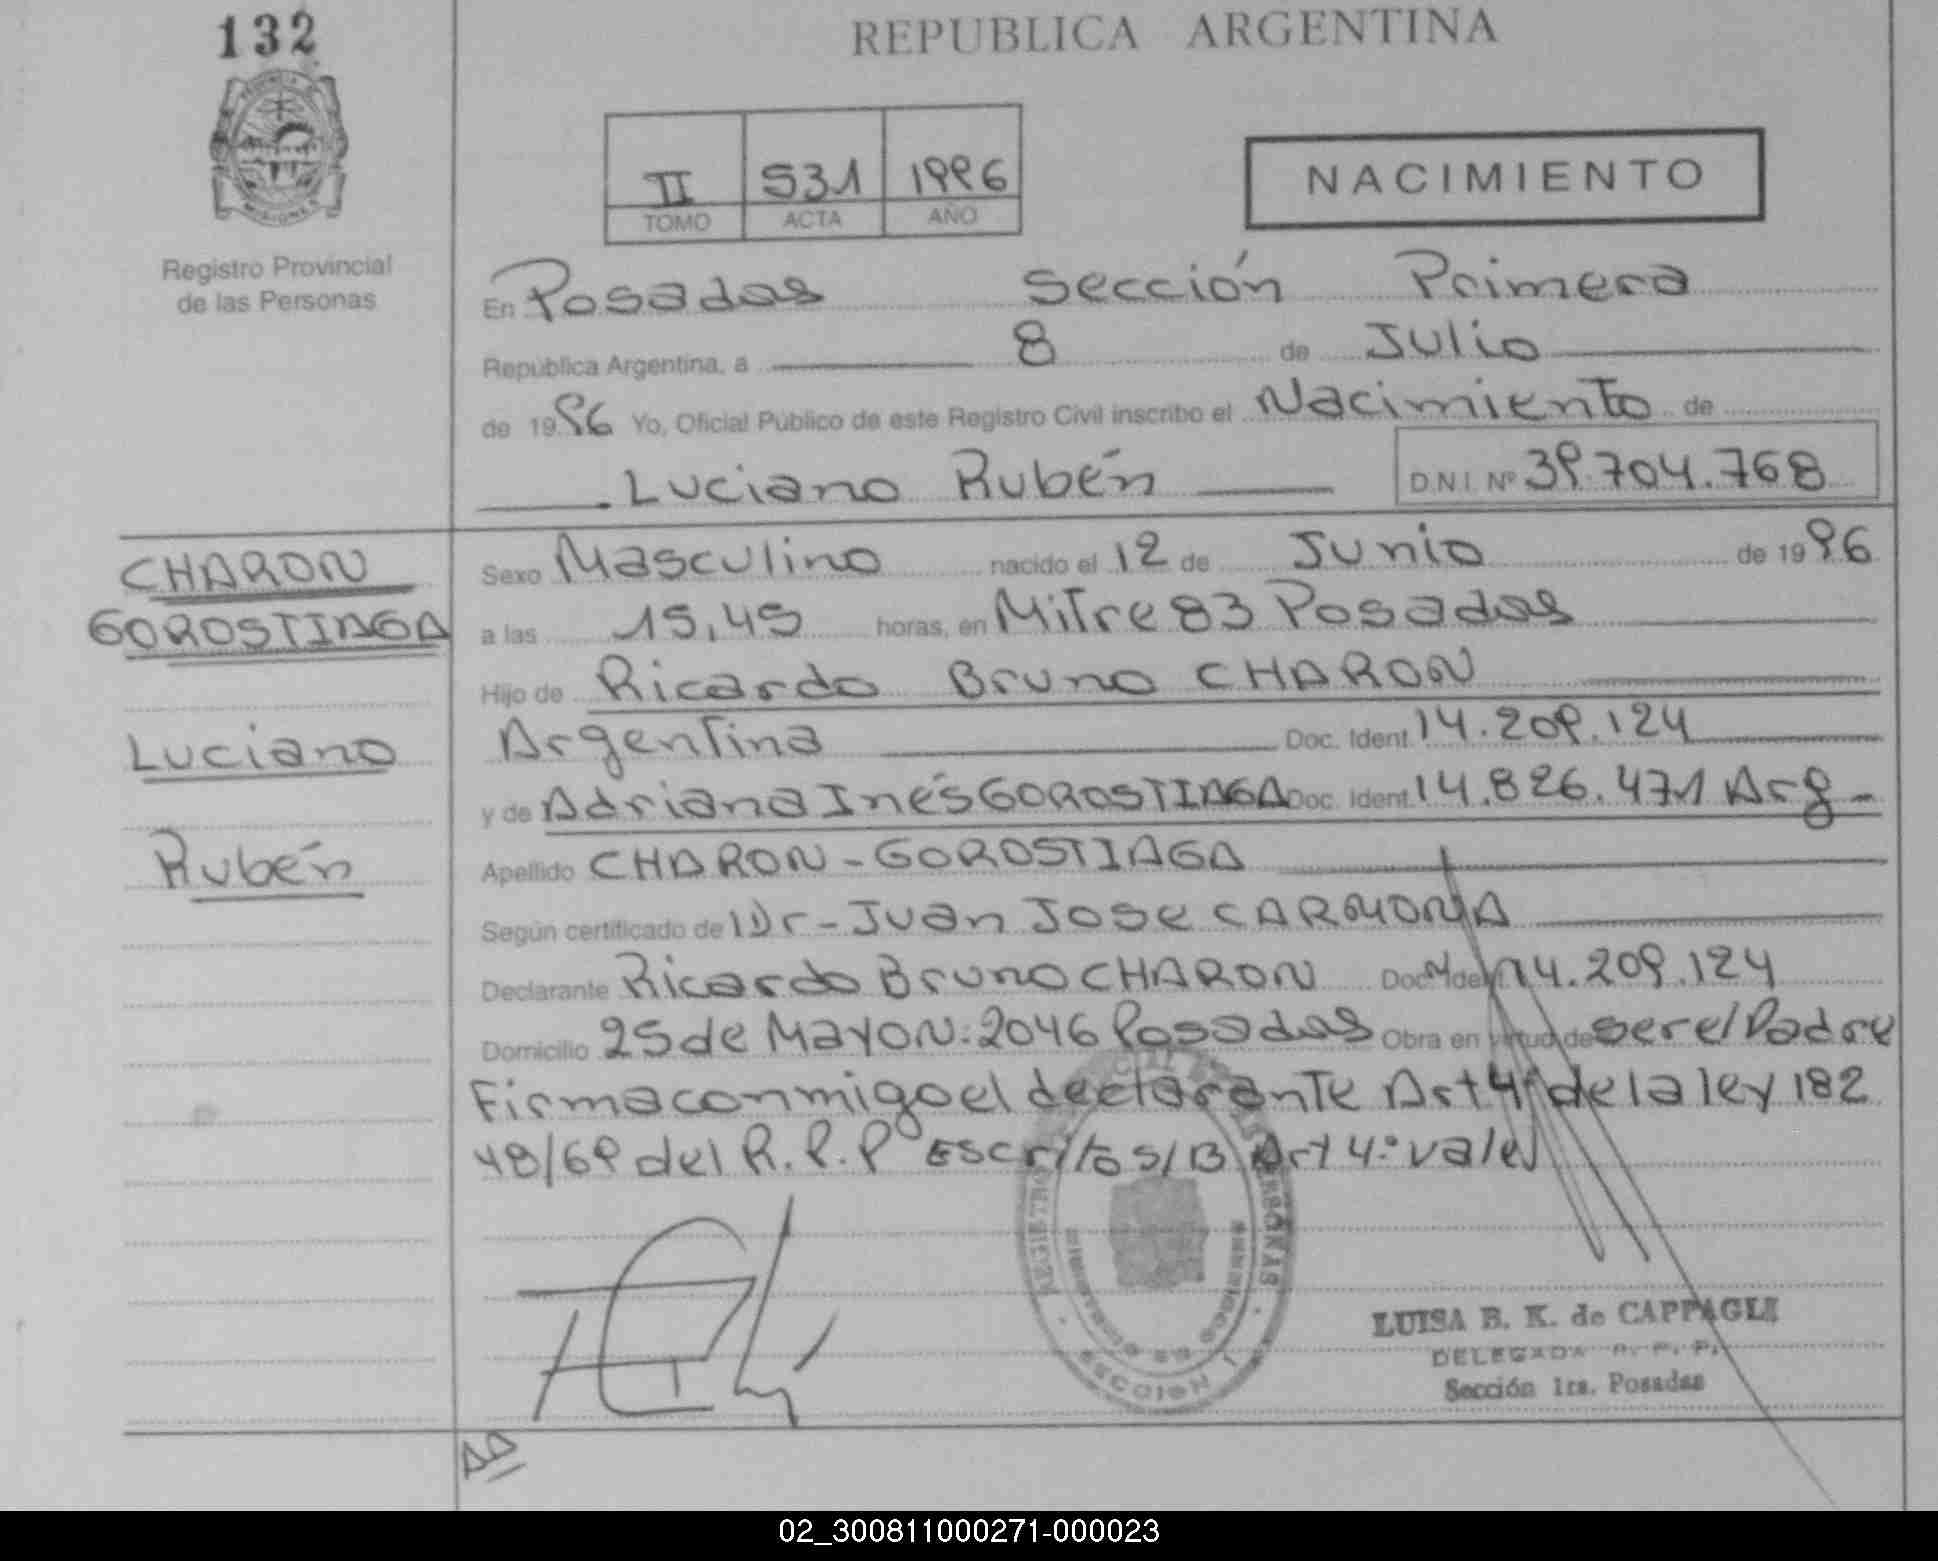 132
REPUBLICA ARGENTINA
PROVINCIA DE MISIONES
II 531 1996
TOMO ACTA AÑO
NACIMIENTO
Registro Provincial
de las Personas
En Posadas Sección Primera
República Argentina, a 8 de Julio
de 1996 Yo, Oficial Público de este Registro Civil inscribo el Nacimiento de
Luciano Rubén D.N.I. Nº 39.704.768
CHARON
GOROSTIAGA
Luciano
Rubén
Sexo Masculino nacido el 12 de Junio de 1996
a las 15,45 horas, en Mitre 83 Posadas
Hijo de Ricardo Bruno CHARON
Argentina Doc. Ident. 14.209.124
y de Adriana Inés GOROSTIAGA Doc. Ident. 14.826.471 Arg-
Apellido CHARON-GOROSTIAGA
Según certificado de Dr-Juan Jose CARMONA
Declarante Ricardo Bruno CHARON Doc. Ident. 14.209.124
Domicilio 25 de Mayo N: 2046 Posadas Obra en virtud de ser el Padre
Firma conmigo el declarante Art 4º de la ley 182
48/69 del R.P.P Escrito S/B Art 4º vale
REGISTRO PROVINCIAL DE LAS PERSONAS
SECCION 1
LUISA B. K. de CAPPAGLI
DELEGADA R. P. P.
Sección 1ra. Posadas
02_300811000271-000023